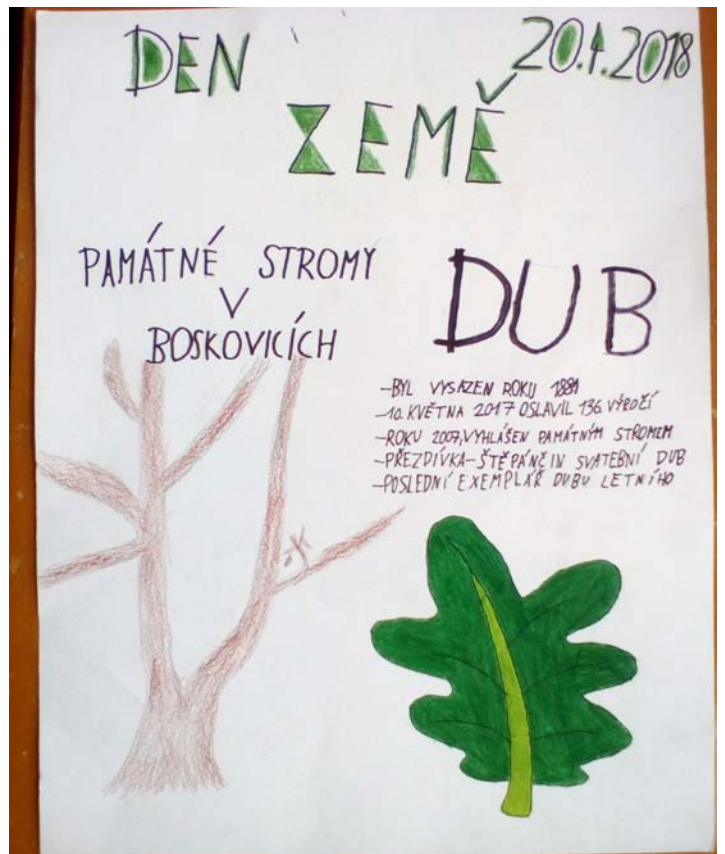 DEN
20.4.2018
ZEMĚ
PAMÁTNÉ STROMY
V
BOSKOVICÍCH
DUB
-BYL VYSAZEN ROKU 1881
-10. KVĚTNA 2017 OSLAVIL 136. VÝROČÍ
-ROKU 2007, VYHLÁŠEN PAMÁTNÝM STROMEM
-PŘEZDÍVKA-ŠTĚPÁNČIN SVATEBNÍ DUB
-POSLEDNÍ EXEMPLÁŘ DUBU LETNÍHO